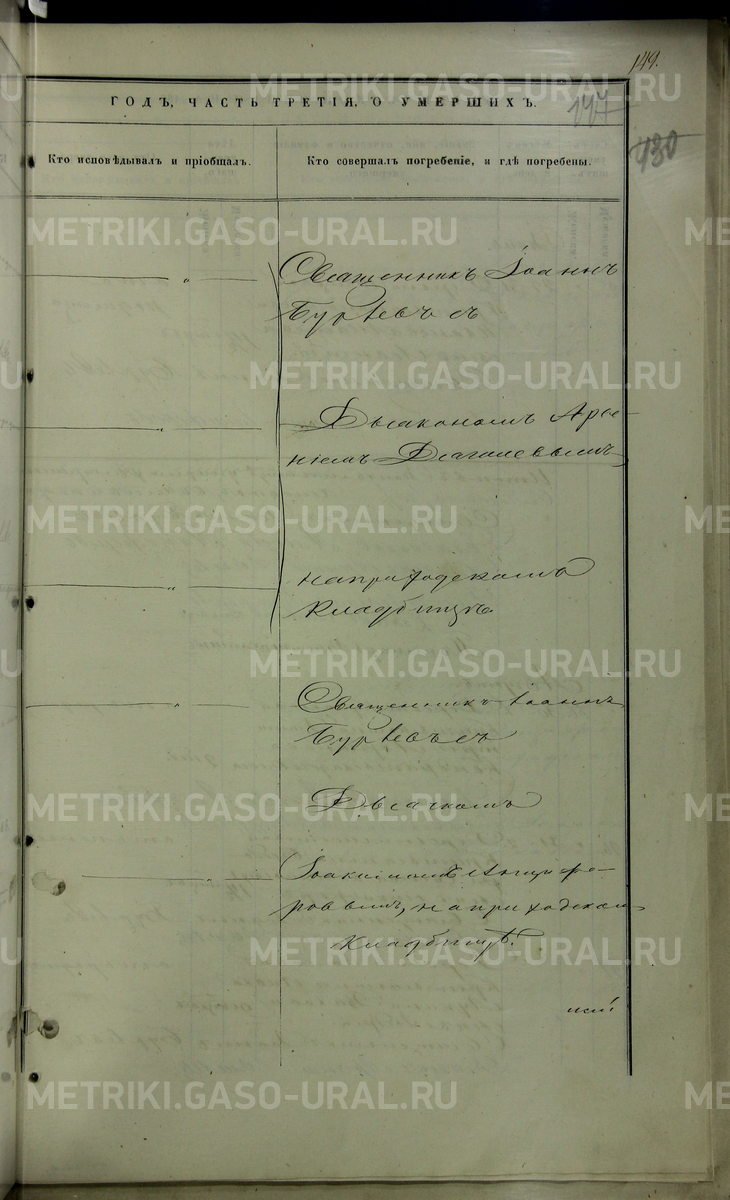 149.
ГОДЪ, ЧАСТЬ ТРЕТІЯ, О УМЕРШИХЪ.
147
430
Кто исповѣдывалъ и пріобщалъ.
Кто совершалъ погребеніе, и гдѣ погребены.
Священникъ Іоаннъ
Бурѣевъ съ
Дьякономъ Арсе-
ніемъ
на приходскомъ
кладбищѣ.
Священникъ Іоаннъ
Бурѣевъ съ
Дьячкомъ
Іоакимомъ Анцифе-
ровымъ, на приходском
кладбищѣ.
METRIKI.GASO-URAL.RU